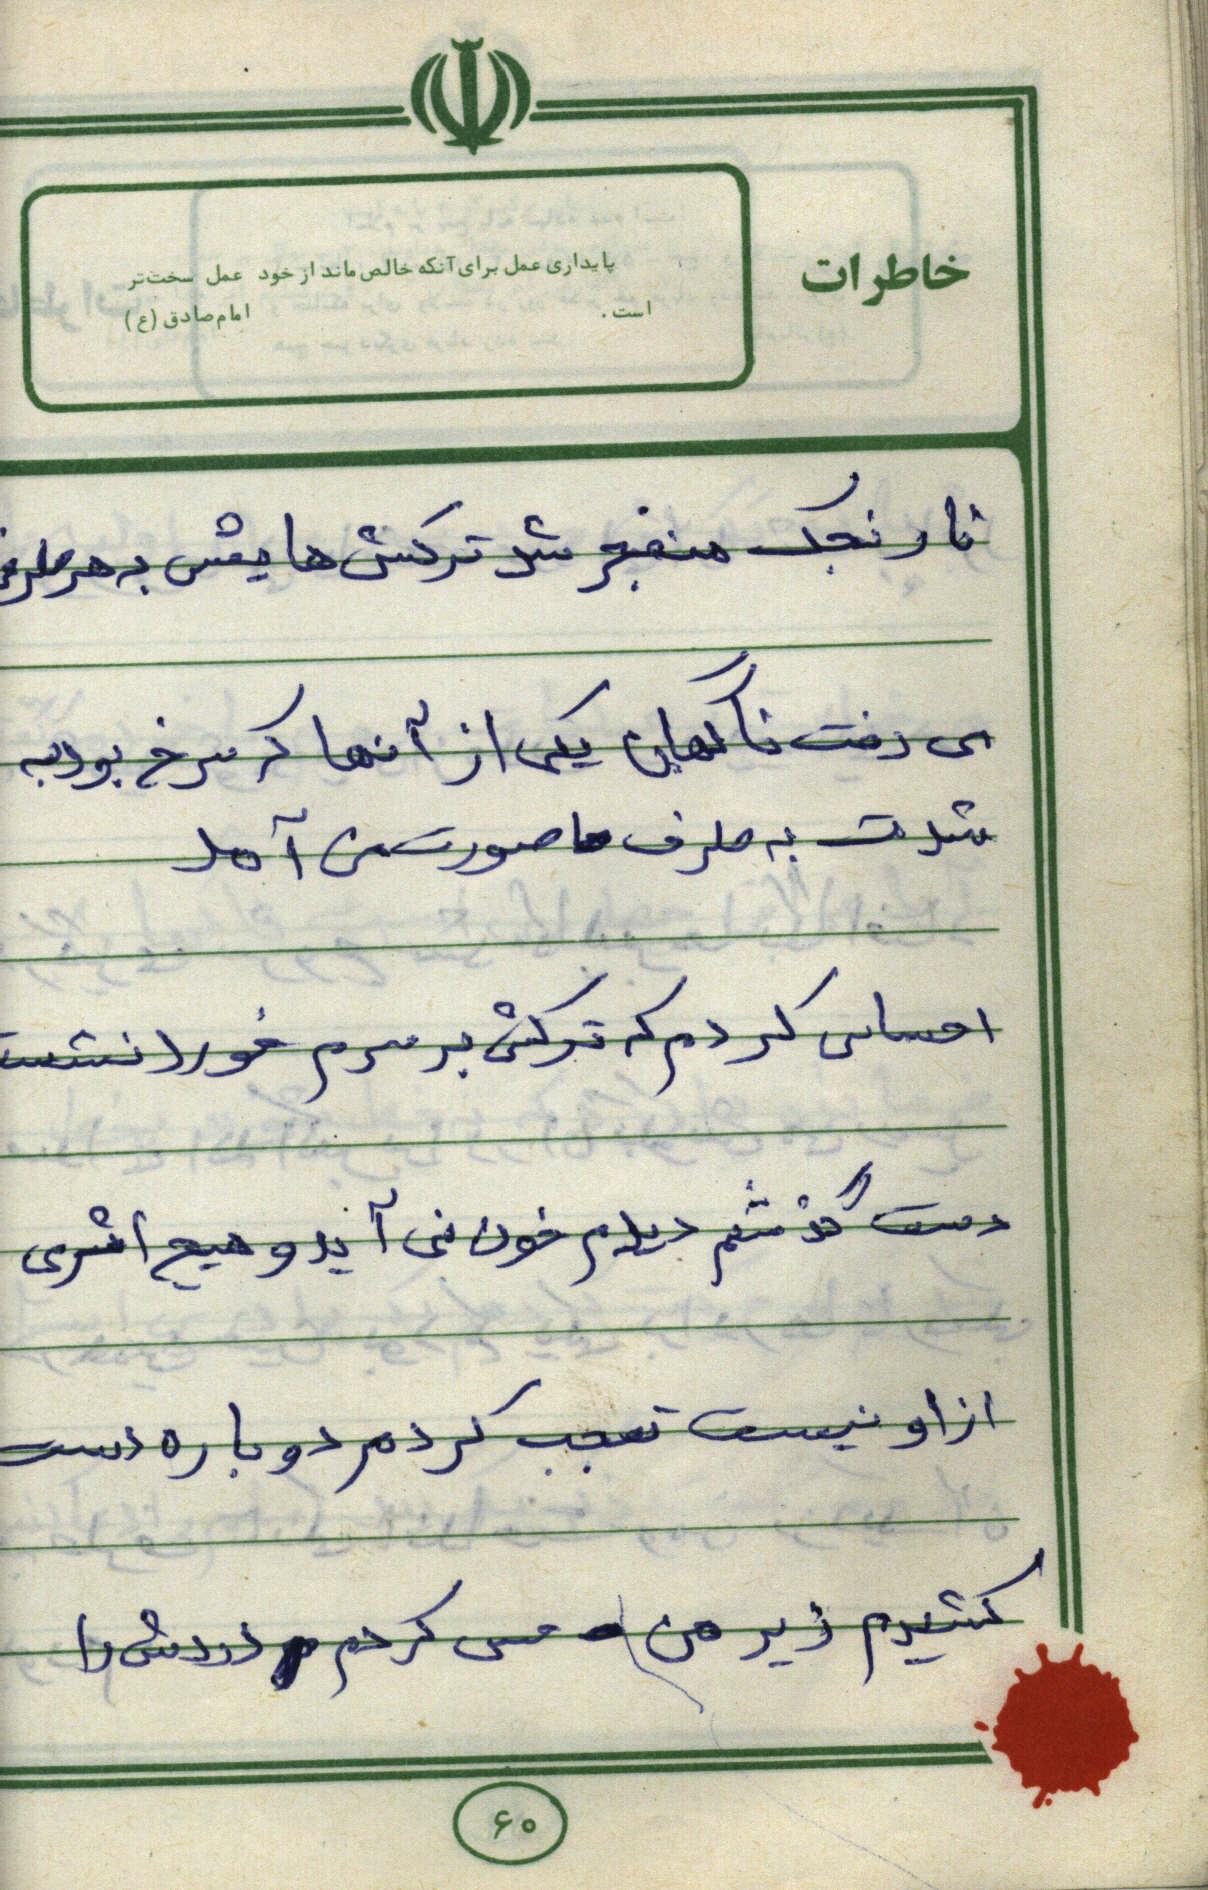 خاطرات
پایداری عمل برای آنکه خالص ماند از خود عمل سخت‌تر
است .
امام صادق (ع)
نارنجک منفجر شد ترکش هایش به هر طرف
می رفت ناگهان یکی از آنها که سرخ بود به
شدت به طرف صورت من آمد
احساس کردم که ترکش بر سرم خورد نشست
دست گذشتم دیدم خون نمی آید و هیچ اثری
از او نیست تعجب کردم دوباره دست
کشیدم زیر من حس کردم دردش را
۶۰